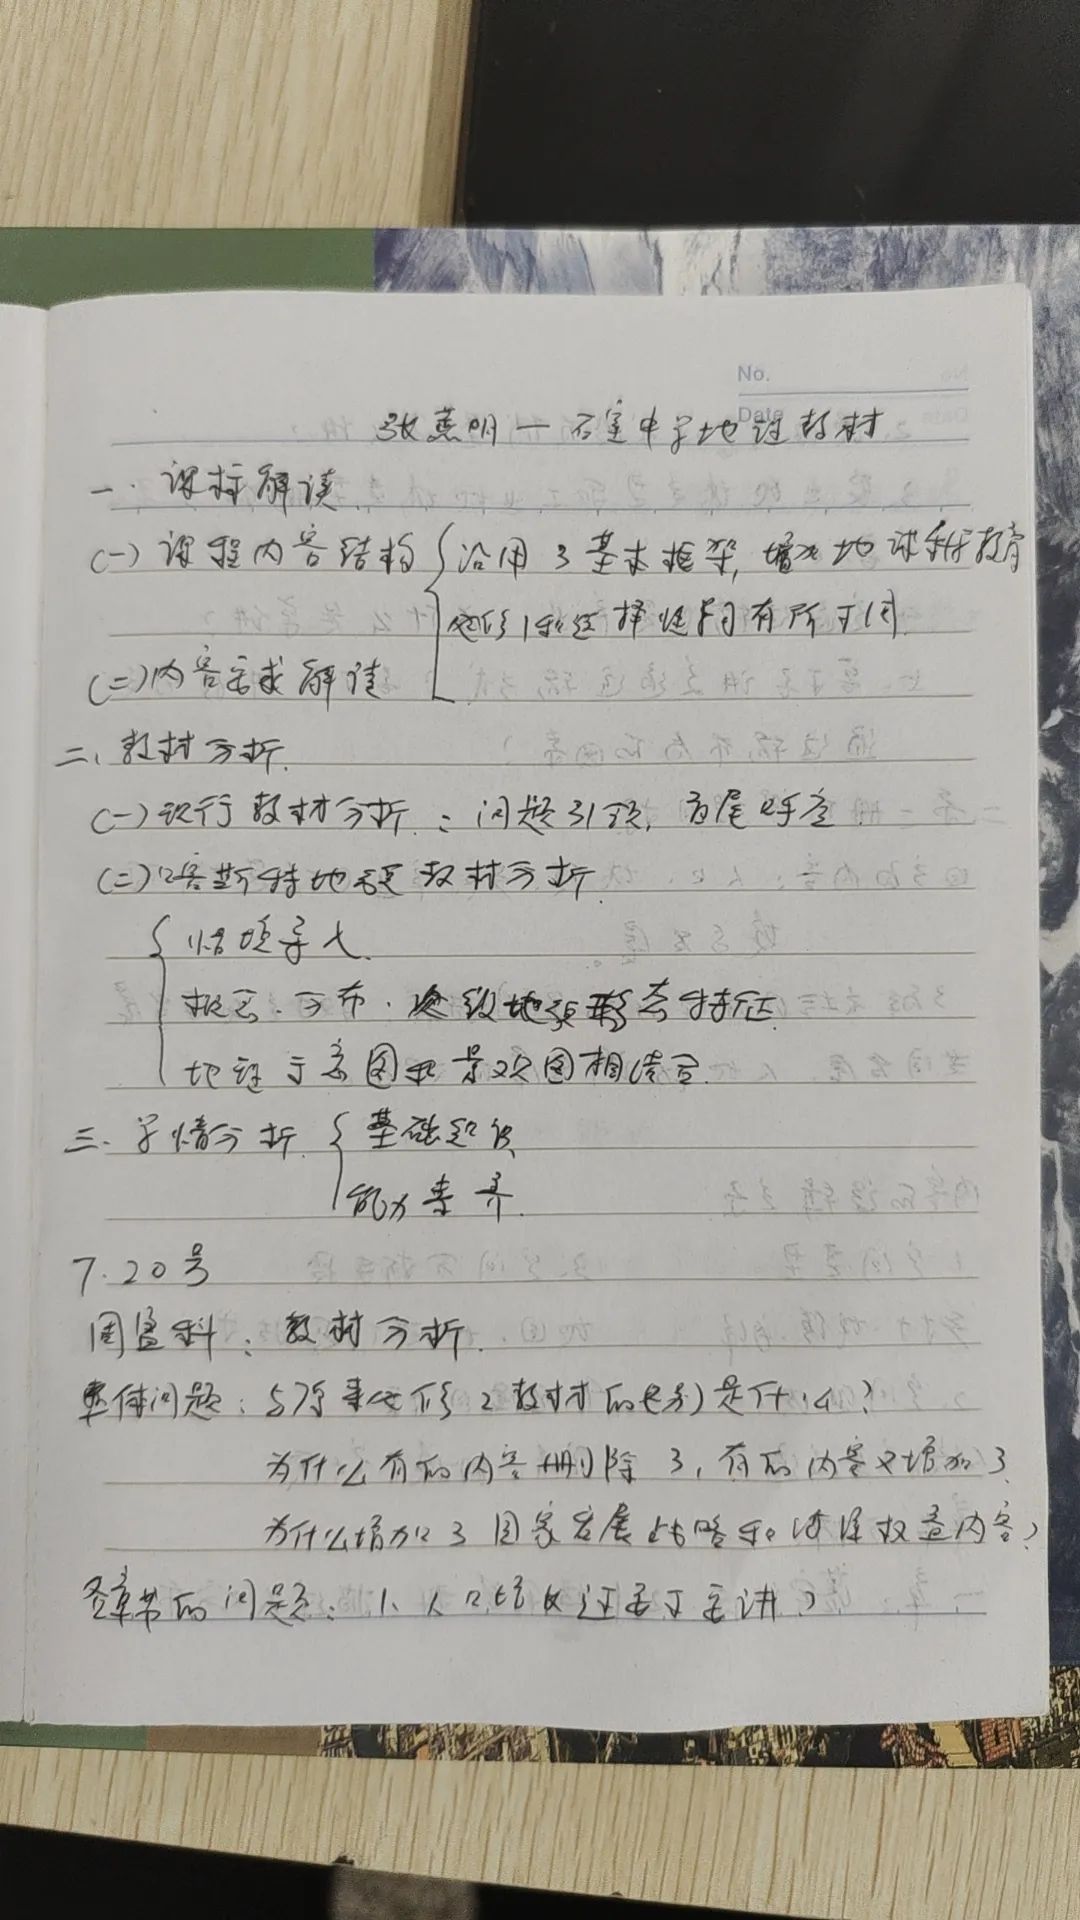 No.
Date
张燕明一石室中学地理教材
一.课标解读
(一)课程内容结构 沿用了基本框架,增大地球科学教育
必修1和选择性学习有所不同
(二)内容要求解读
二、教材分析.
(一)现行教材分析.:问题引领,首尾呼应.
(二)喀斯特地貌教材分析.
情境导入.
概念、分布、次级地貌形态特征
地理示意图和景观图相结合.
三.学情分析. 基础知识
能力素养.
7.20号
教材分析.
整体问题:与原来必修2教材的区别是什么?
为什么有的内容删除了,有的内容又增加了
为什么增加了国家发展战略和海洋权益内容?
各章节的问题:1、人口 还要不要讲?